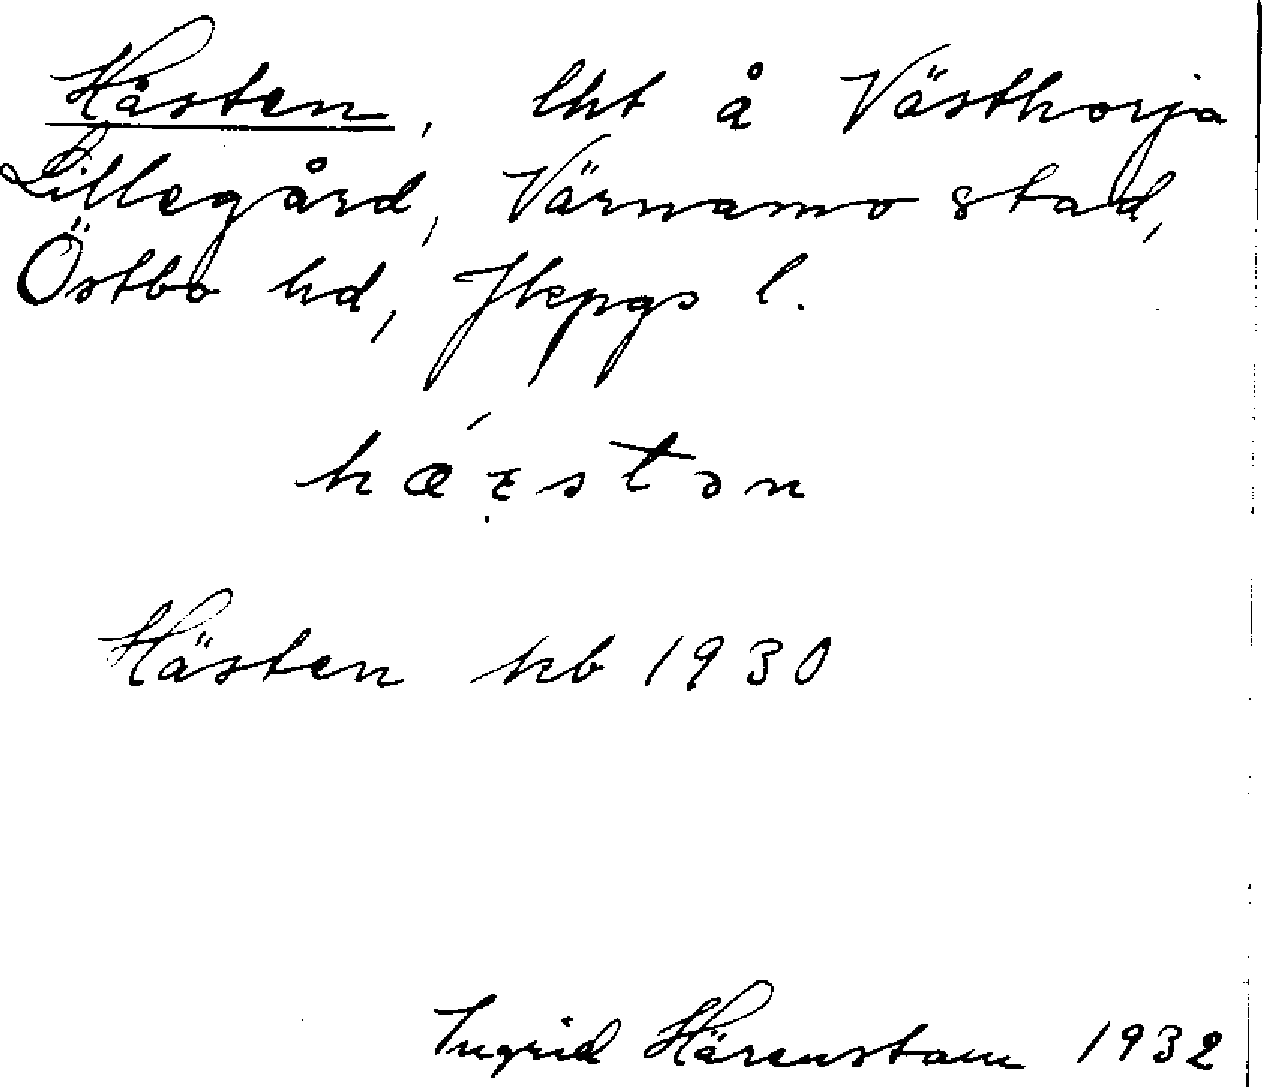 Hästen, lht å Västhorja
Lillegård, Värnamo stad,
Östbo hd, Jkpgs l.
hǽɽstən
Hästen kb 1930
Ingrid Härenstam 1932